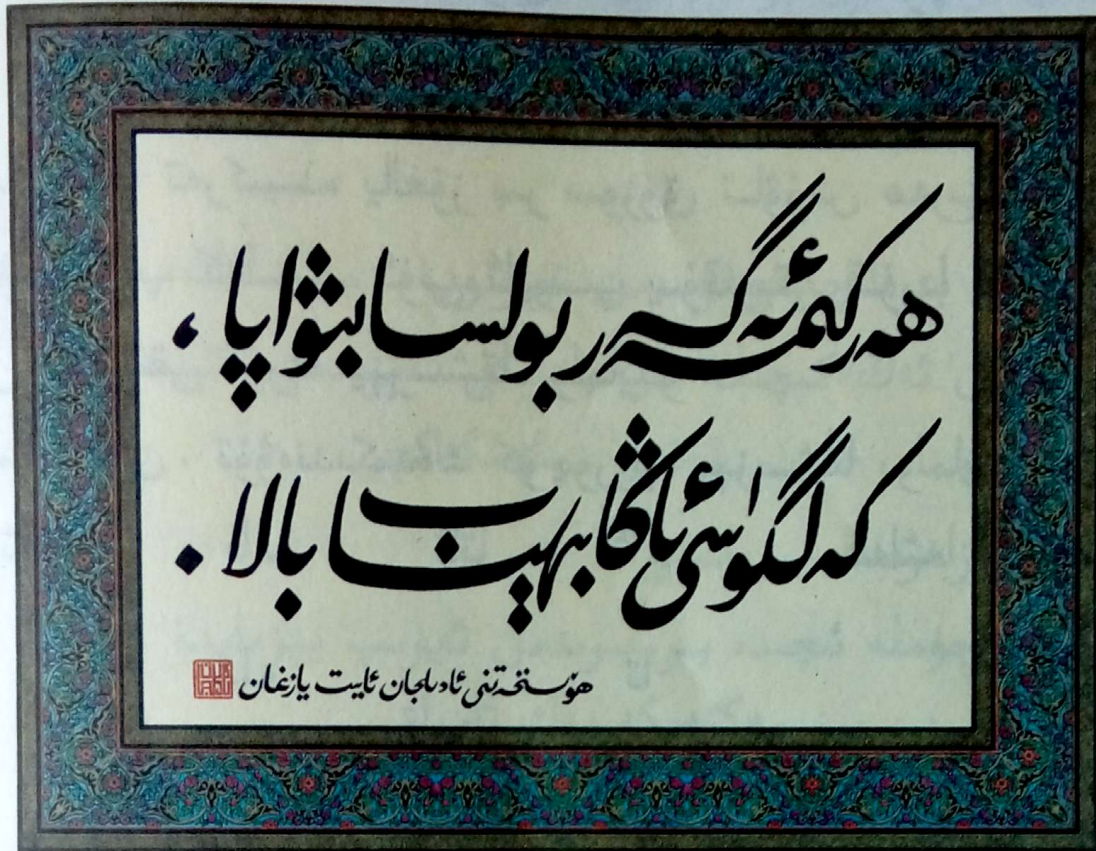 ھەركىمئە گەر بولسا بىۋاپا ،
كەلگۈسى ئاڭا بېھىساب بالا .
ھۆسنخەتنى ئادىلجان ئايت يازغان